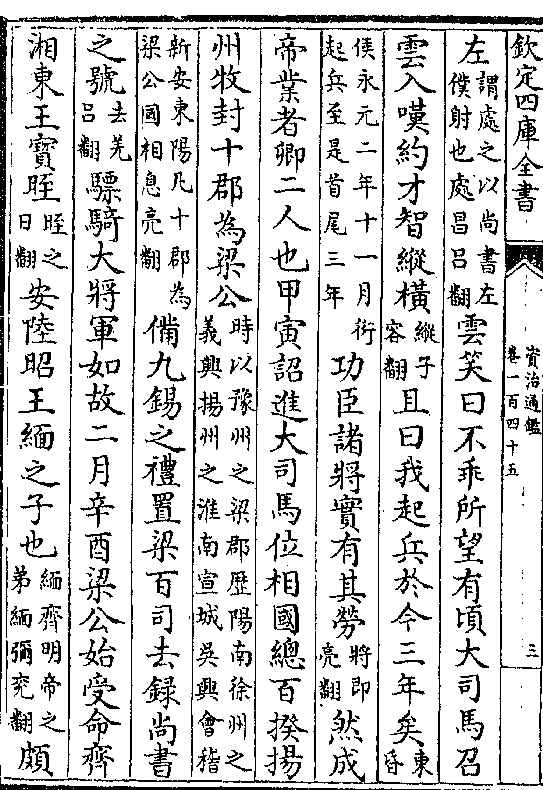 欽定四庫全書
資治通鑑
卷一百四十五
三
左謂處之以尚書左僕射也處昌吕翻雲笑曰不乖所望有頃大司馬召
雲入嘆約才智縱橫縱子容翻且曰我起兵於今三年矣東昏
侯永元二年十一月衍起兵至是首尾三年功臣諸將實有其勞將即亮翻然成
帝業者卿二人也甲寅詔進大司馬位相國總百揆揚
州牧封十郡為梁公時以豫州之梁郡歷陽南徐州之義興揚州之淮南宣城吳興會稽
新安東陽凡十郡為梁公國相息亮翻備九錫之禮置梁百司去録尚書
之號去羌吕翻驃騎大將軍如故二月辛酉梁公始受命齊
湘東王寶晊晊之日翻安陸昭王緬之子也緬齊明帝之弟緬彌兖翻頗